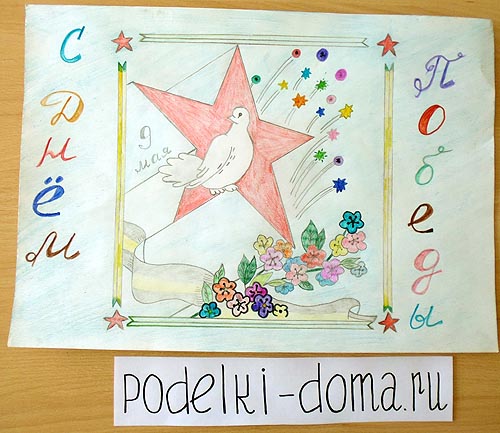 С Днём
Победы
9
мая
podelki-doma.ru